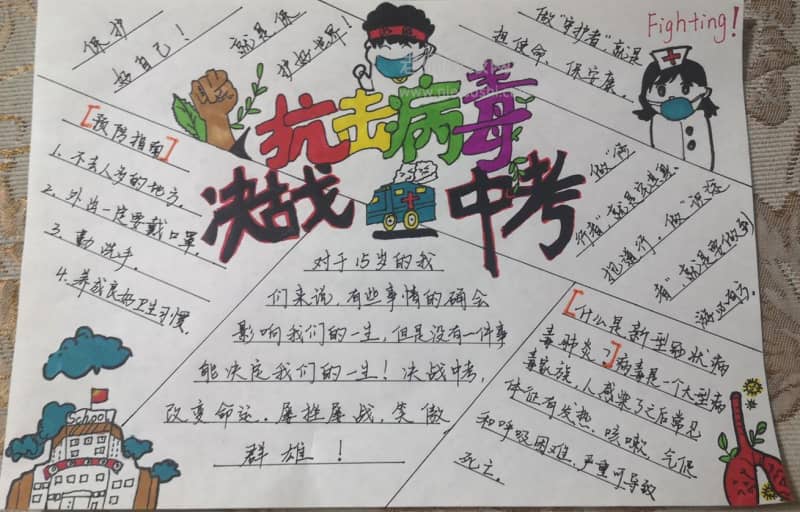 保护
好自己！
就是保
护好世界！
做“守护者”就是
担使命、保宁康。
Fighting!
抗击病毒
决战
中考
[预防指南]
1. 不去人多的地方
2. 外出一定要戴口罩。
3. 勤洗手。
4. 养成良好卫生习惯。
对于15岁的我
们来说，有些事情的确会
影响我们的一生，但是没有一件事
能决定我们的一生！决战中考，
改变命运..屡挫屡战，笑傲
群雄！
做“
行者”，就是
抱道行。做“
者”，就是要做到
[什么是新型冠状病
毒肺炎?]病毒是一个大型病
毒家族，人感染了之后常见
体征有发热、咳嗽、气促
和呼吸困难，严重可导致
死亡。
School